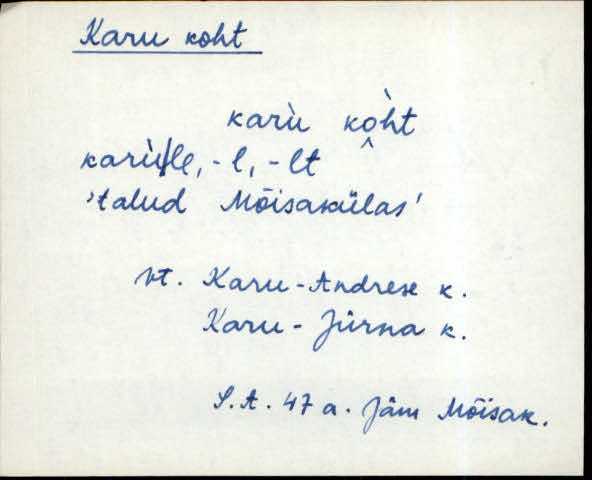 Karu koht
karù kò̭ht
karùlle, -l, -lt
'talud Mõisakülas'
vt. Karu-Andrese k.
Karu-Jürna k.
S.A. 47 a. Jäm Mõisak.